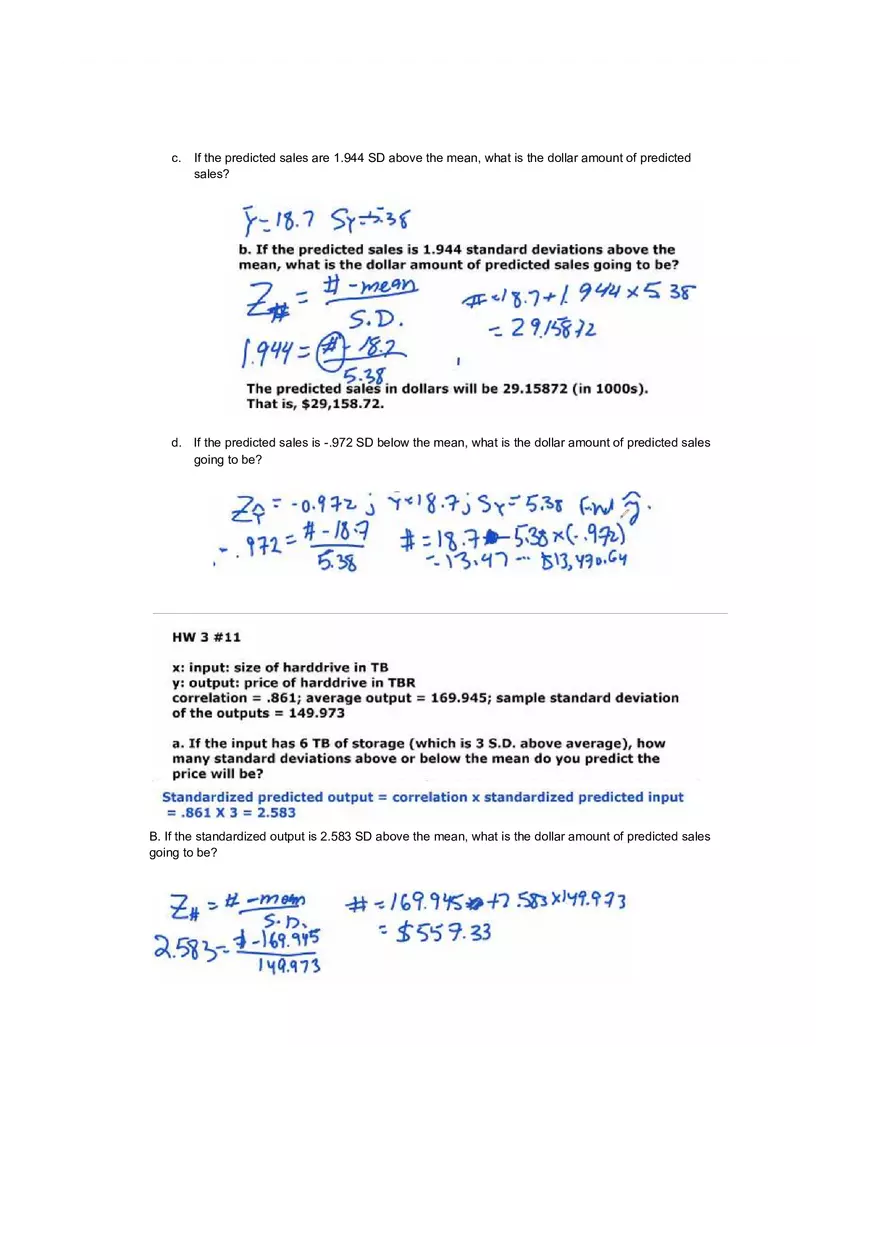 c. If the predicted sales are 1.944 SD above the mean, what is the dollar amount of predicted
sales?
Ȳ=18.7 Sy=5.38
b. If the predicted sales is 1.944 standard deviations above the
mean, what is the dollar amount of predicted sales going to be?
Z# = # - mean / S.D.
# = 18.7+1.944×5.38
= 29.15872
1.944 = # - 18.7 / 5.38
The predicted sales in dollars will be 29.15872 (in 1000s).
That is, $29,158.72.
d. If the predicted sales is -.972 SD below the mean, what is the dollar amount of predicted sales
going to be?
Zŷ = -0.972 ; Ȳ=18.7; Sy=5.38 find ŷ.
-.972 = # - 18.7 / 5.38
# = 18.7 + 5.38×(-.972)
= 13.47 ... $13,470.64
HW 3 #11
x: input: size of harddrive in TB
y: output: price of harddrive in TBR
correlation = .861; average output = 169.945; sample standard deviation
of the outputs = 149.973
a. If the input has 6 TB of storage (which is 3 S.D. above average), how
many standard deviations above or below the mean do you predict the
price will be?
Standardized predicted output = correlation x standardized predicted input
= .861 X 3 = 2.583
B. If the standardized output is 2.583 SD above the mean, what is the dollar amount of predicted sales
going to be?
Z# = # - mean / S.D.
# = 169.945 + 2.583×149.973
= $557.33
2.583 = # - 169.945 / 149.973